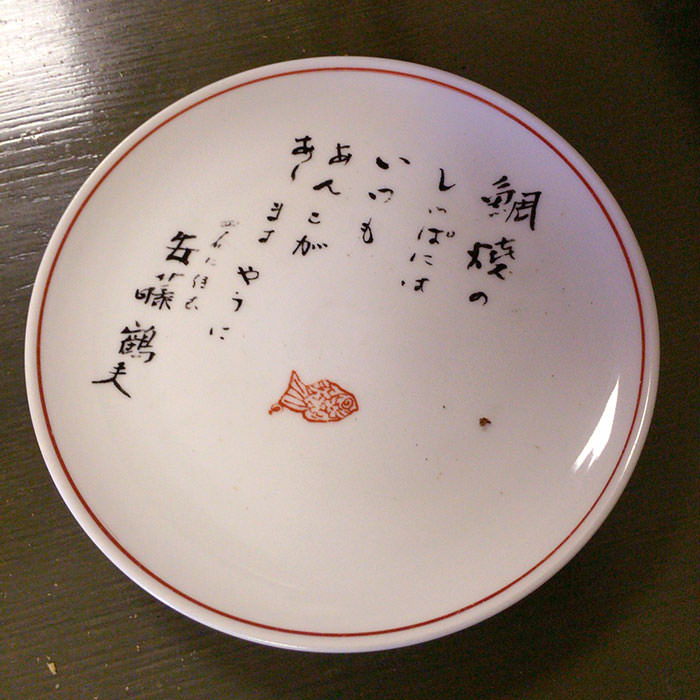 鯛焼の
しっぽには
いつも
あんこが
あります
やうに
四谷に住む
安藤鶴夫